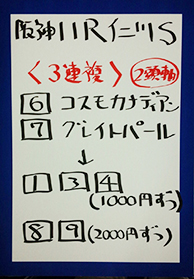 阪神11R仁川S
〈3連複〉 2頭軸
6 コスモカナディアン
7 グレイトパール
↓
1 3 4
(1000円ずつ)
8 9 (2000円ずつ)